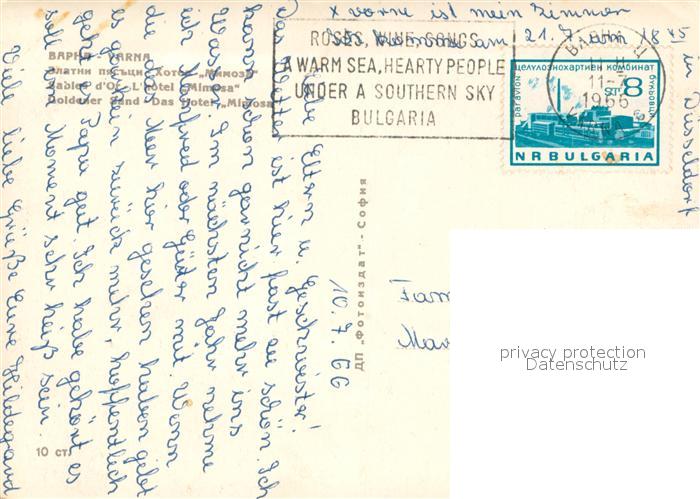 x vorne ist mein Zimmer
Ich komme am 21.7. um 18 45
in Düsseldorf
ВАРНА - VARNA
Златни пясъци - Хотел „Мимоза"
Sables d'Or - L'hôtel „Mimosa"
Goldener Sand - Das Hotel „Mimosa"
ROSES, WINE, SONGS,
A WARM SEA, HEARTY PEOPLE
UNDER A SOUTHERN SKY
BULGARIA
ВАРНА
11-7
1966
целулознохартиен комбинат
8 СТ.
NR BULGARIA
10.7.66
Liebe Eltern u. Geschwister!
Das Wetter ist hier fast zu schön. Ich
kann schon garnicht mehr ins
Wasser. Im nächsten Jahr nehme
ich Manfred oder Günter mit. Wenn
die das Meer hier gesehen haben gibt
es kein zurück mehr, hoffentlich
geht es Papa gut. Ich habe gehört es
soll im Moment sehr heiß sein.
Viele liebe Grüße Eure Hildegard
ДП „Фотоиздат" - София
10 ст.
Fam
Mar
privacy protection
Datenschutz